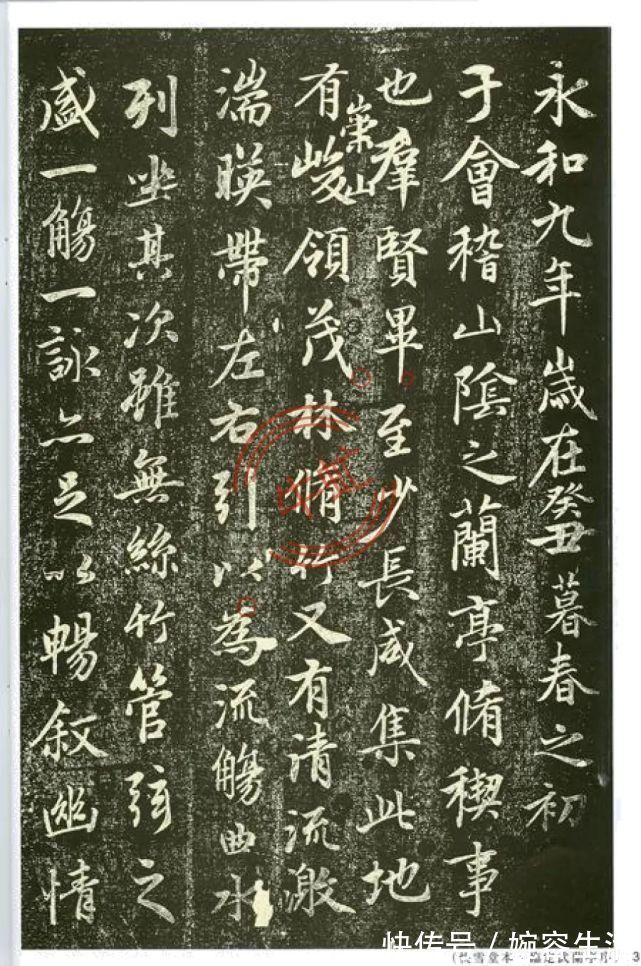 永和九年歲在癸丑暮春之初
于會稽山陰之蘭亭脩稧事
也羣賢畢至少長咸集此地
有崇山峻領茂林脩竹又有清流激
湍暎帶左右引以為流觴曲水
列坐其次雖無絲竹管弦之
盛一觴一詠亦足以暢叙幽情
快传号/婉容生活
3